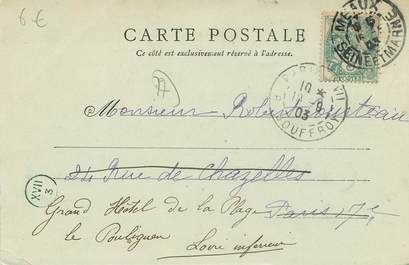 6 €
CARTE POSTALE
Ce côté est exclusivement réservé à l'adresse.
MEAUX
SEINE ET MARNE
PARIS XVII
10 *
03
JOUFFROY
Monsieur
24 Rue de Chazelles
XVII
3
Grand Hôtel de la Plage Paris 17e
le Pouliguen Loire inférieure